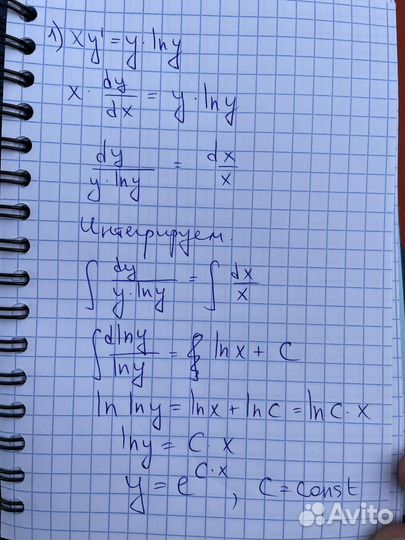 1) xy' = y · ln y
x · dy/dx = y · ln y
dy/(y · ln y) = dx/x
Интегрируем.
∫ dy/(y · ln y) = ∫ dx/x
∫ d ln y/ln y = ln x + C
ln ln y = ln x + ln C = ln C · x
ln y = C · x
y = e^(C · x), C = const
Avito